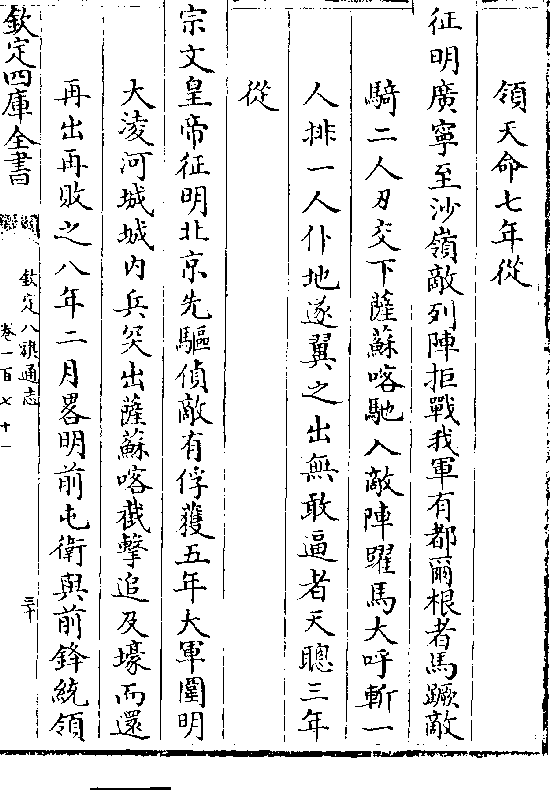 領天命七年從
征明廣寧至沙嶺敵列陣拒戰我軍有都爾根者馬蹶敵
騎二人刃交下薩蘇喀馳入敵陣躍馬大呼斬一
人排一人仆地遂翼之出無敢逼者天聰三年
從
宗文皇帝征明北京先驅偵敵有俘獲五年大軍圍明
大淩河城城内兵突出薩蘇喀截擊追及壕而還
再出再敗之八年二月畧明前屯衛與前鋒統領
欽定四庫全書
欽定八旗通志
卷一百七十一
三十